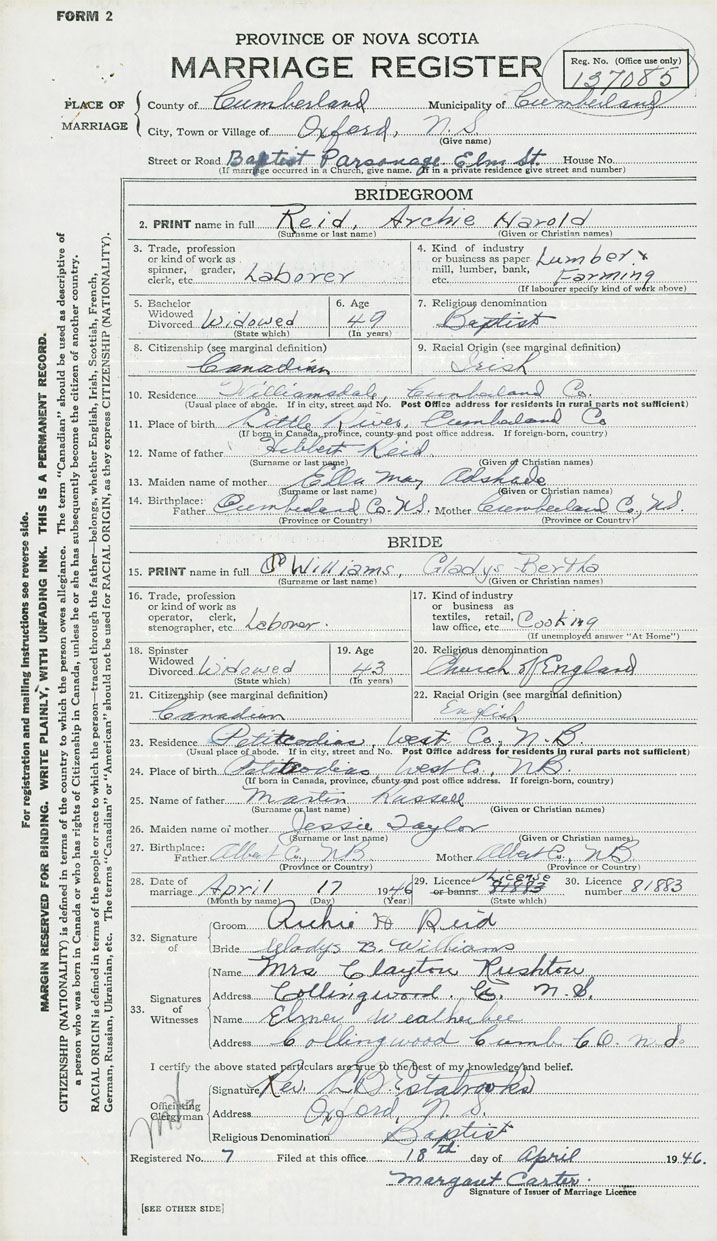 FORM 2
PROVINCE OF NOVA SCOTIA
MARRIAGE REGISTER
Reg. No. (Office use only)
137085
PLACE OF MARRIAGE
County of Cumberland Municipality of Cumberland
City, Town or Village of Oxford, N.S.
(Give name)
Street or Road Baptist Parsonage Elm St. House No.
(If marriage occurred in a Church, give name. If in a private residence give street and number)
BRIDEGROOM
2. PRINT name in full Reid, Archie Harold
(Surname or last name) (Given or Christian names)
3. Trade, profession or kind of work as spinner, grader, clerk, etc. Laborer
4. Kind of industry or business as paper mill, lumber, bank, etc. Lumber & Farming
(If labourer specify kind of work above)
5. Bachelor Widowed Divorced Widowed
(State which)
6. Age 49
(In years)
7. Religious denomination
Baptist
8. Citizenship (see marginal definition)
Canadian
9. Racial Origin (see marginal definition)
Irish
10. Residence Williamsdale, Cumberland Co.
(Usual place of abode. If in city, street and No. Post Office address for residents in rural parts not sufficient)
11. Place of birth Little River, Cumberland Co
(If born in Canada, province, county and post office address. If foreign-born, country)
12. Name of father Hibbert Reid
(Surname or last name) (Given or Christian names)
13. Maiden name of mother Ella May Adshade
(Surname or last name) (Given or Christian names)
14. Birthplace: Father Cumberland Co. N.S. Mother Cumberland Co., N.S.
(Province or Country) (Province or Country)
BRIDE
15. PRINT name in full Williams, Gladys Bertha
(Surname or last name) (Given or Christian names)
16. Trade, profession or kind of work as operator, clerk, stenographer, etc. Laborer.
17. Kind of industry or business as textiles, retail, law office, etc. Cooking
(If unemployed answer "At Home")
18. Spinster Widowed Divorced Widowed
(State which)
19. Age 43
(In years)
20. Religious denomination
Church of England
21. Citizenship (see marginal definition)
Canadian
22. Racial Origin (see marginal definition)
English
23. Residence Petitcodiac, West. Co., N.B.
(Usual place of abode. If in city, street and No. Post Office address for residents in rural parts not sufficient)
24. Place of birth Petitcodiac West. Co., N.B.
(If born in Canada, province, county and post office address. If foreign-born, country)
25. Name of father Martin Russell
(Surname or last name) (Given or Christian names)
26. Maiden name of mother Jessie Taylor
(Surname or last name) (Given or Christian names)
27. Birthplace: Father Albert Co., N.B. Mother Albert Co., N.B.
(Province or Country) (Province or Country)
28. Date of marriage April 17 1946
(Month by name) (Day) (Year)
29. Licence or banns License 81883
(State which)
30. Licence number 81883
32. Signature of
Groom Archie H Reid
Bride Gladys B. Williams
33. Signatures of Witnesses
Name Mrs Clayton Rushton
Address Collingwood, C. N.S.
Name Elmer Weatherbee
Address Collingwood Cumb Co. N.S.
I certify the above stated particulars are true to the best of my knowledge and belief.
Officiating Clergyman
Signature Rev. Estabrooks
Address Oxford, N.S.
Religious Denomination Baptist
Registered No. 7 Filed at this office 18th day of April 1946.
Margaret Carter.
Signature of Issuer of Marriage Licence
[SEE OTHER SIDE]
For registration and mailing instructions see reverse side.
MARGIN RESERVED FOR BINDING. WRITE PLAINLY, WITH UNFADING INK. THIS IS A PERMANENT RECORD.
CITIZENSHIP (NATIONALITY) is defined in terms of the country to which the person owes allegiance. The term "Canadian" should be used as descriptive of
a person who was born in Canada or who has rights of Citizenship in Canada, unless he or she has subsequently become the citizen of another country.
RACIAL ORIGIN is defined in terms of the people or race to which the person—traced through the father—belongs, whether English, Irish, Scottish, French,
German, Russian, Ukrainian, etc. The terms "Canadian" or "American" should not be used for RACIAL ORIGIN, as they express CITIZENSHIP (NATIONALITY).